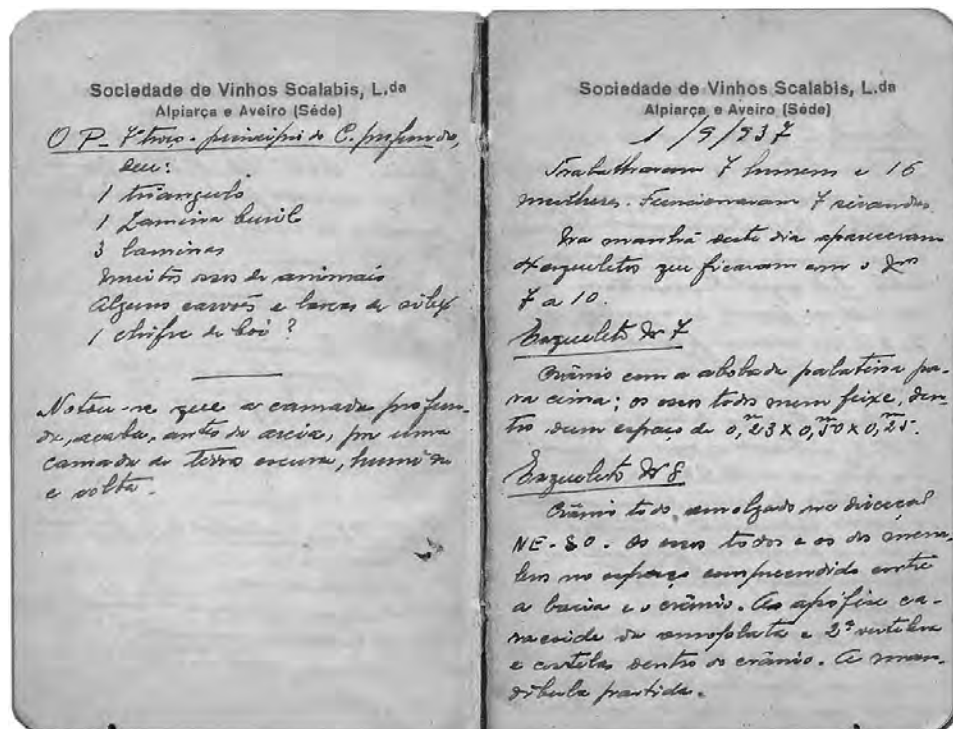 Sociedade de Vinhos Scalabis, L.da
Alpiarça e Aveiro (Séde)
O P- 7º troço - principio de C. profunda,
deu:
1 triangulo
1 Lamina buril
3 laminas
muitos ossos de animais
Alguns carvões e lascas de silex
1 chifre de boi ?
Notou-se que a camada profun-
da, acaba, antes da areia, por uma
camada de terra escura, humida
e solta.
Sociedade de Vinhos Scalabis, L.da
Alpiarça e Aveiro (Séde)
1 /9/937
Trabalharam 7 homens e 16
mulheres. Funcionaram 7 cirandas.
Na manhã deste dia apareceram
4 esqueletos que ficaram com o Nos
7 a 10.
Esqueleto Nº 7
Crânio com a abobada palatina pa-
ra cima; os ossos todos num feixe, den-
tro dum espaço de 0,m23 x 0,m50 x 0,m25.
Esqueleto Nº 8
Crânio todo amolgado na direcçal
NE-SO. Os ossos todos e os dos mem-
bros no espaço compreendido entre
a bacia e o crânio. As apófise ca-
racoide da omoplata e 2ª vertebra
e costelas dentro do crânio. A man-
dibula partida.